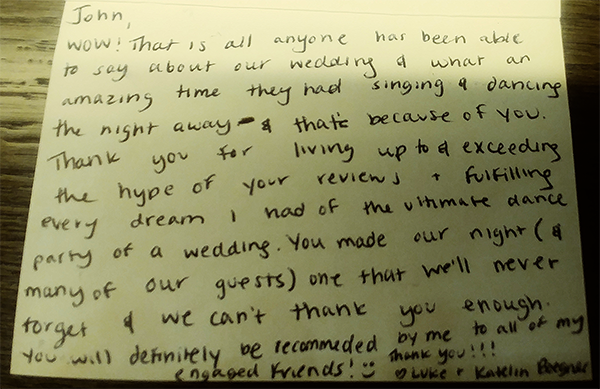 John,
WOW! That is all anyone has been able
to say about our wedding & what an
amazing time they had singing & dancing
the night away - & that's because of you.
Thank you for living up to & exceeding
the hype of your reviews + fulfilling
every dream I had of the ultimate dance
party of a wedding. You made our night (&
many of our guests) one that we'll never
forget & we can't thank you enough.
You will definitely be recommeded by me to all of my
engaged friends! ☺ Thank you!!!
♡ Luke + Katelin